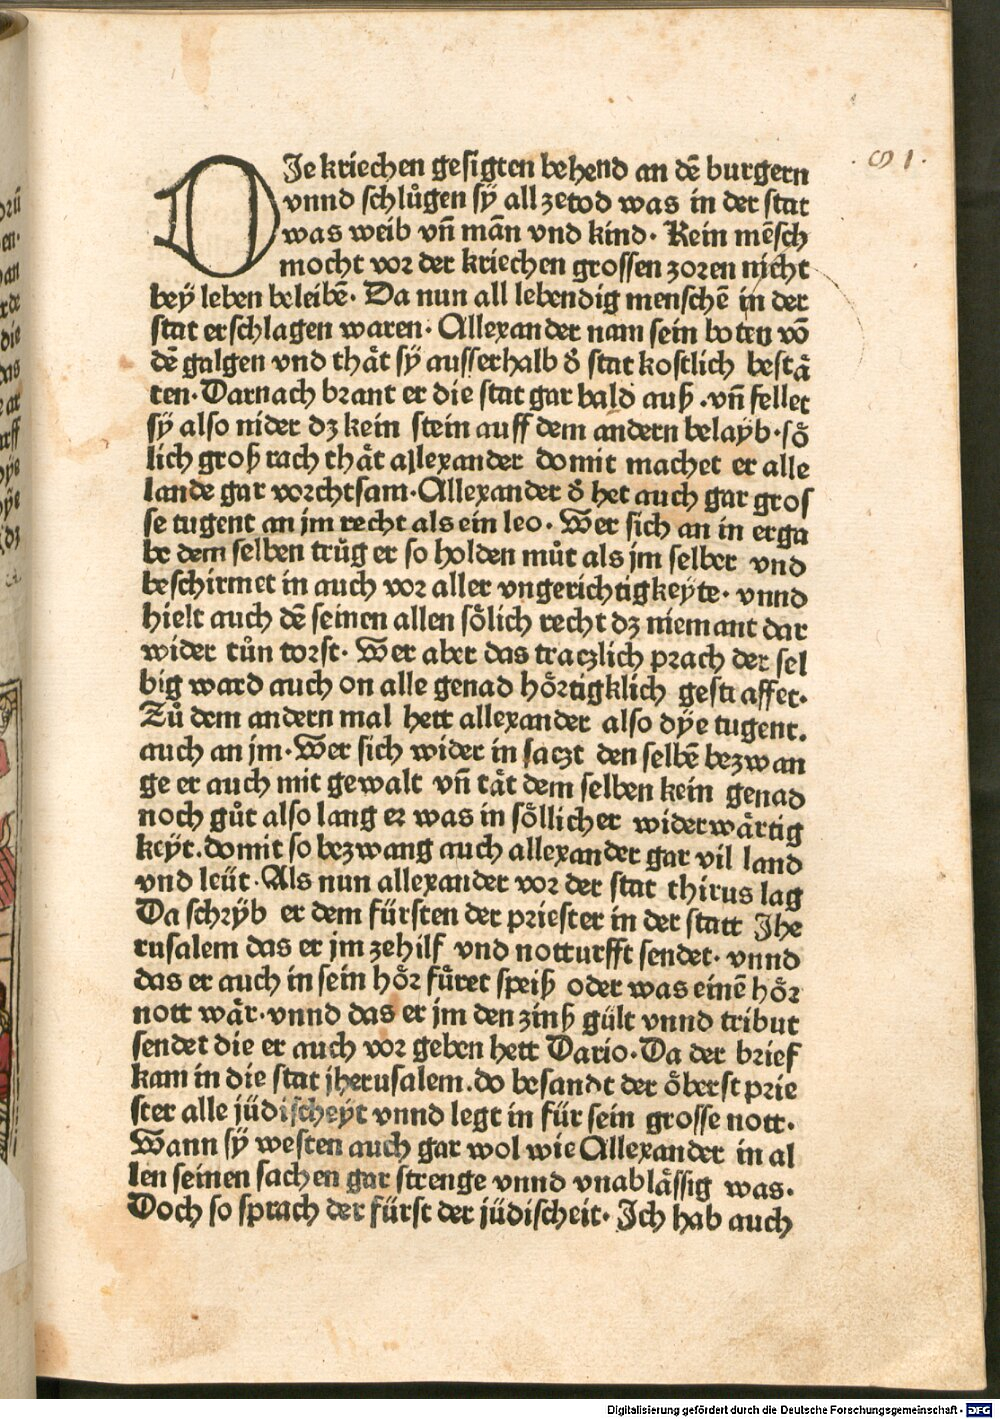 ·91·
DIe kriechen gesigten behend an dē burgern
vnnd schlůgen sÿ all zetod was in der stat
was weib vn̄ mān vnd kind· Kein mēsch
mocht vor der kriechen grossen zoren nicht
beÿ leben beleibē· Da nun all lebendig menschē in der
stat erschlagen waren· Allexander nam sein boten vō
dē galgen vnd thåt sÿ ausserhalb d̓ stat kostlich bestå
ten· Darnach brant er die stat gar bald auß ·vn̄ fellet
sÿ also nider dz kein stein auff dem andern belaÿb·sŏ
lich groß rach thåt allexander domit machet er alle
lande gar vorchtsam· Allexander d̓ het auch gar gros
se tugent an jm recht als ein leo· Wer sich an in erga
be dem selben trůg er so holden můt als jm selber vnd
beschirmet in auch vor aller vngerichtigkeÿte· vnnd
hielt auch dē seinen allen sŏlich recht dz niemant dar
wider tůn torst· Wer aber das traczlich prach der sel
big ward auch on alle genad hŏrtigklich gestraffet·
Zů dem andern mal hett allexander also dÿe tugent.
auch an jm· Wer sich wider in saczt den selbē bezwan
ge er auch mit gewalt vn̄ tåt dem selben kein genad
noch gůt also lang er was in sŏllicher widerwårtig
keÿt.domit so bezwang auch allexander gar vil land
vnd leüt· Als nun allexander vor der stat thirus lag
Da schrÿb er dem fürsten der priester in der statt Jhe
rusalem das er jm zehilf vnd notturfft sendet· vnnd
das er auch in sein hŏr fůret speiß oder was einē hŏr
nott wår·vnnd das er jm den zinß gült vnnd tribut
sendet die er auch vor geben hett Dario· Da der brief
kam in die stat jherusalem.do besandt der ŏberst prie
ster alle jüdischeÿt vnnd legt in für sein grosse nott·
Wann sÿ westen auch gar wol wie Allexander in al
len seinen sachen gar strenge vnnd vnablåssig was·
Doch so sprach der fürst der jüdischeit· Ich hab auch
Digitalisierung gefördert durch die Deutsche Forschungsgemeinschaft - DFG